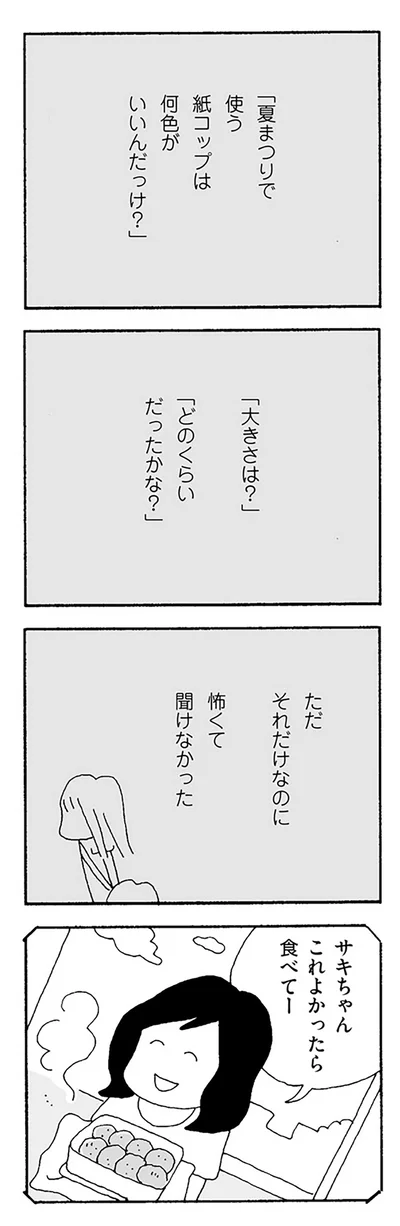 「夏まつりで
使う
紙コップは
何色が
いいんだっけ？」
「大きさは？」
「どのくらい
だったかな？」
ただ
それだけなのに
怖くて
聞けなかった
サキちゃん
これよかったら
食べてー